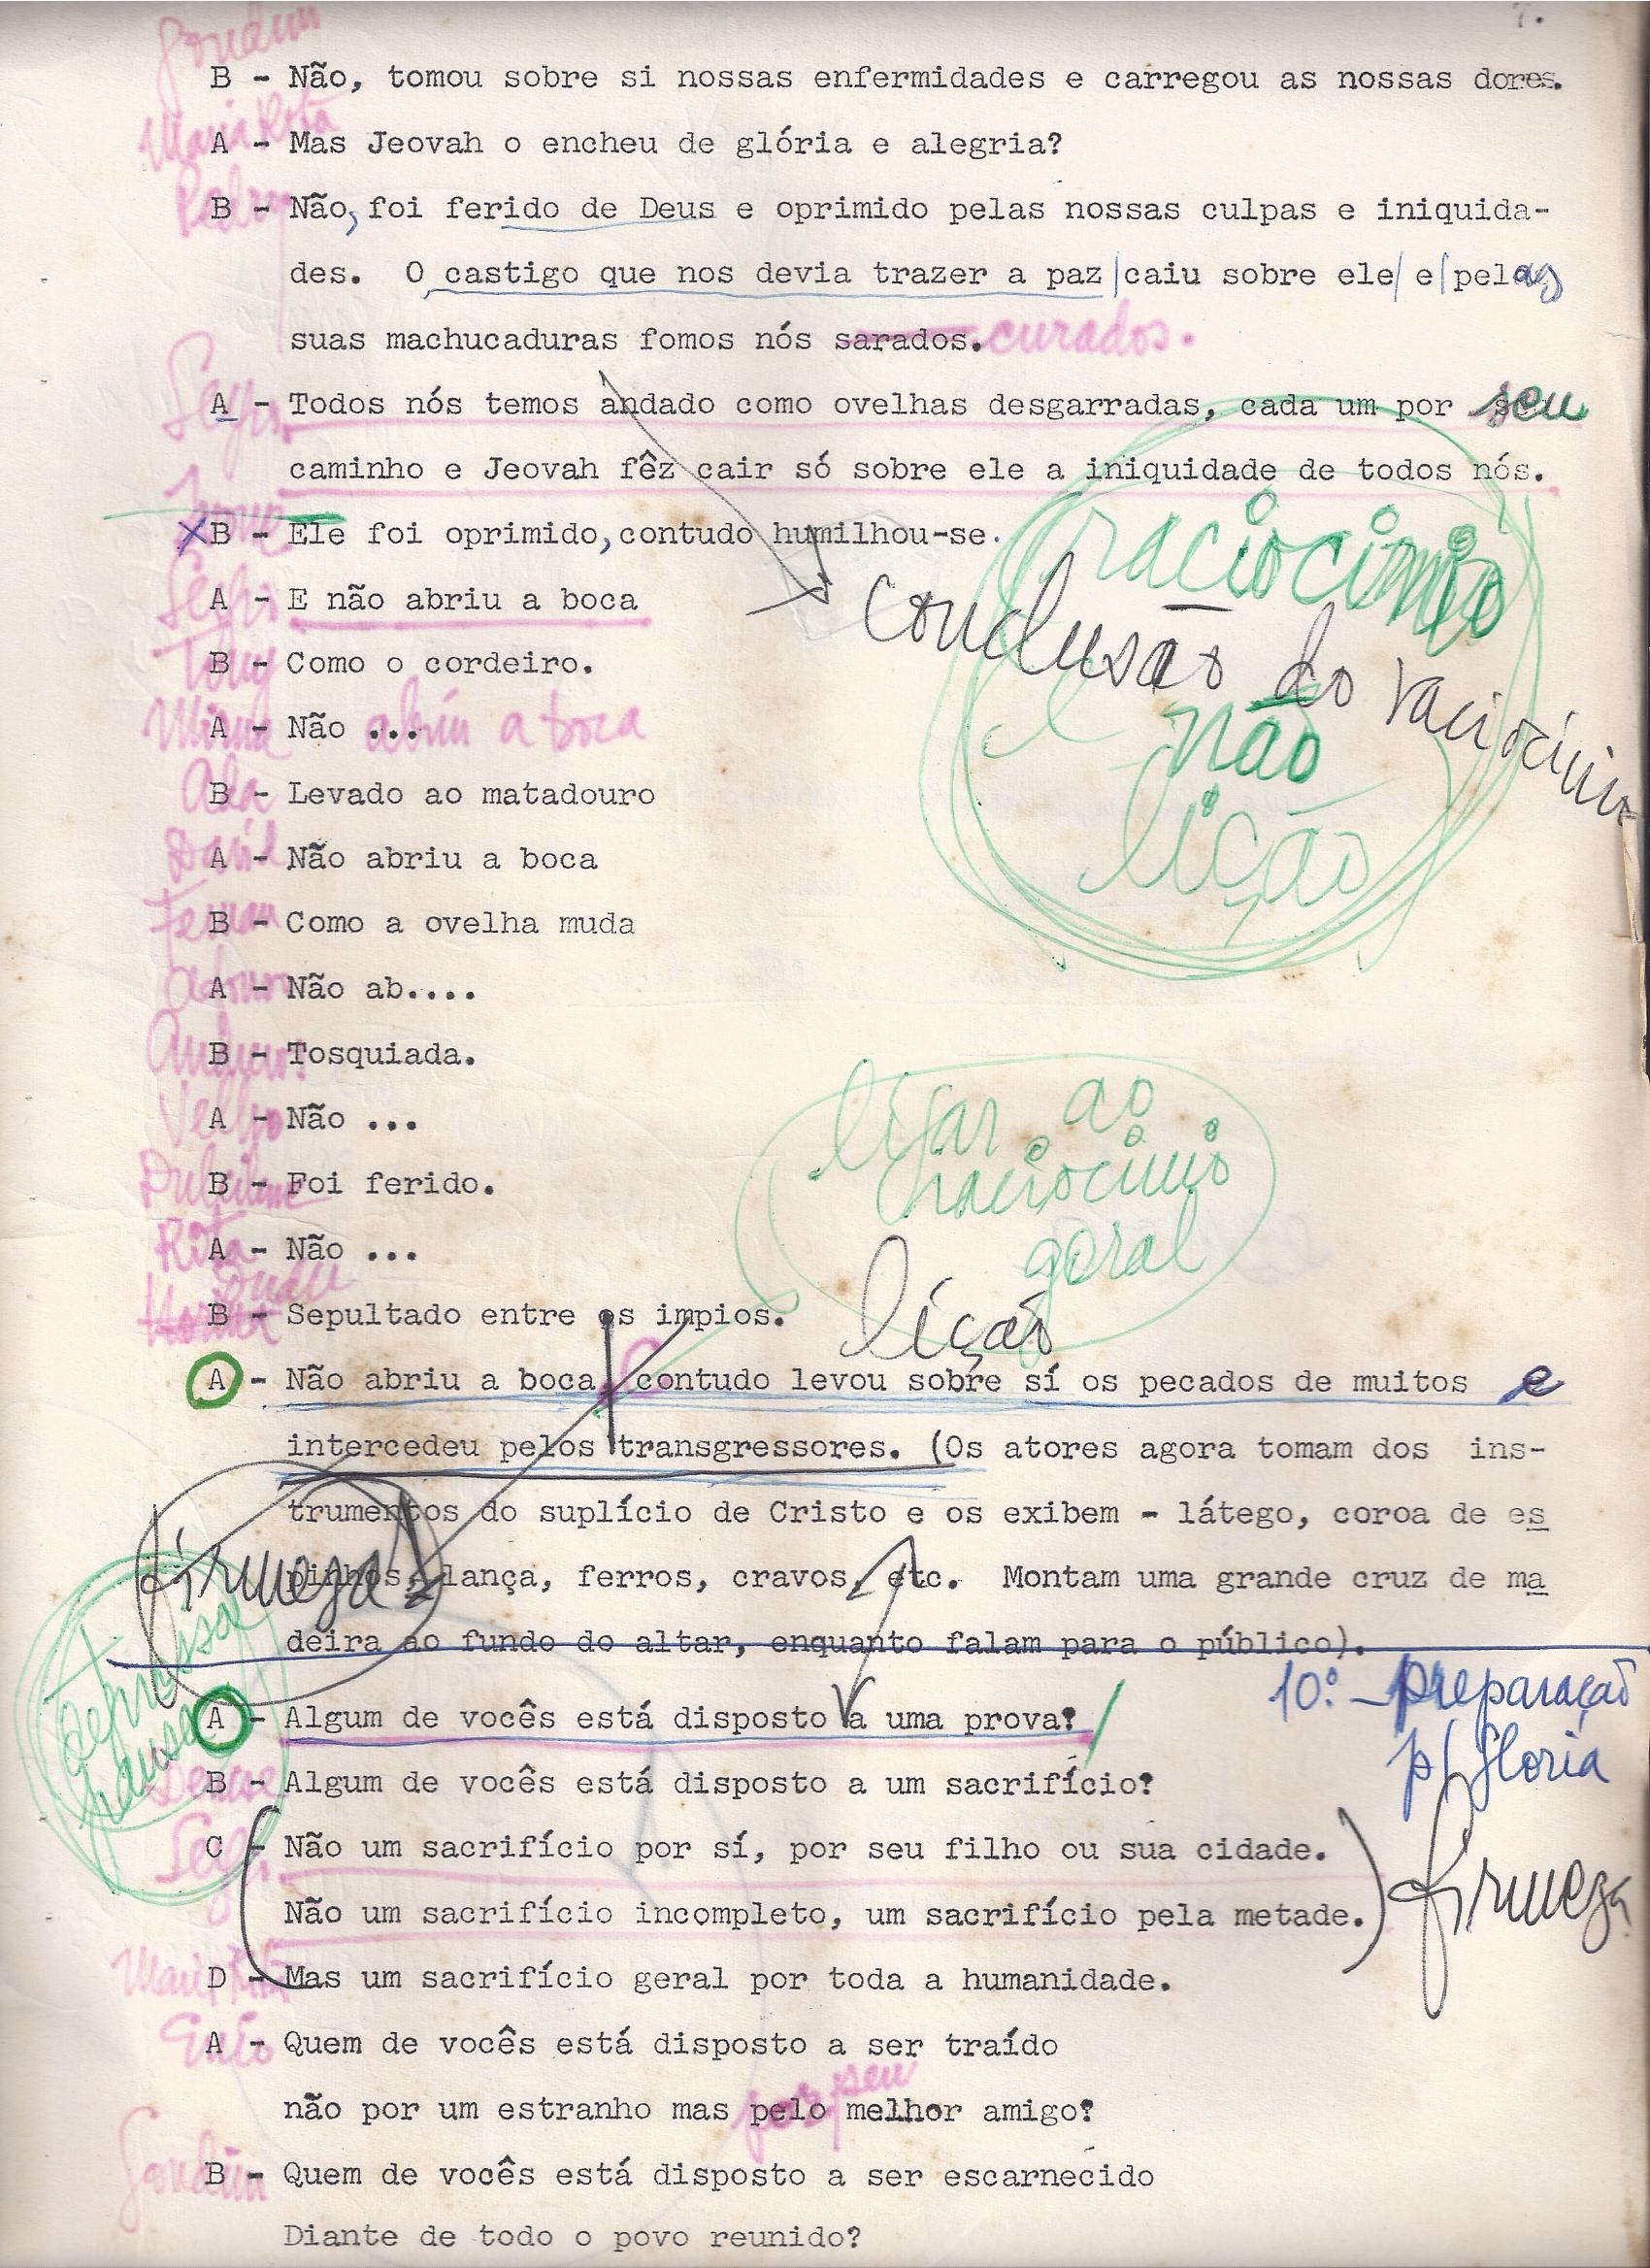 7.
B - Não, tomou sobre si nossas enfermidades e carregou as nossas dores.
Maria Rita
A - Mas Jeovah o encheu de glória e alegria?
Pedro
B - Não, foi ferido de Deus e oprimido pelas nossas culpas e iniquida-
des. O castigo que nos devia trazer a paz | caiu sobre ele | e | pelas
suas machucaduras fomos nós sarados. curados.
A - Todos nós temos andado como ovelhas desgarradas, cada um por seu
caminho e Jeovah fêz cair só sobre ele a iniquidade de todos nós.
X B - Ele foi oprimido, contudo humilhou-se.
raciocínio
A - E não abriu a boca
conclusão do raciocínio
Tony
B - Como o cordeiro.
não
A - Não ... abriu a boca
B - Levado ao matadouro
lição
David
A - Não abriu a boca
B - Como a ovelha muda
A - Não ab....
B - Tosquiada.
ligar ao
A - Não ...
raciocínio
B - Foi ferido.
geral
Rita
A - Não ...
B - Sepultado entre os impios.
lição
A - Não abriu a boca, contudo levou sobre sí os pecados de muitos e
intercedeu pelos transgressores. (Os atores agora tomam dos ins-
trumentos do suplício de Cristo e os exibem - látego, coroa de es
pinhos, lança, ferros, cravos, etc. Montam uma grande cruz de ma
firmeza
deira ao fundo do altar, enquanto falam para o público).
10º - preparação
p/ Gloria
pausa
A - Algum de vocês está disposto a uma prova?
B - Algum de vocês está disposto a um sacrifício?
C - Não um sacrifício por sí, por seu filho ou sua cidade.
Não um sacrifício incompleto, um sacrifício pela metade.
firmeza
Maria Rita
D - Mas um sacrifício geral por toda a humanidade.
A - Quem de vocês está disposto a ser traído
por seu
não por um estranho mas pelo melhor amigo?
B - Quem de vocês está disposto a ser escarnecido
Diante de todo o povo reunido?